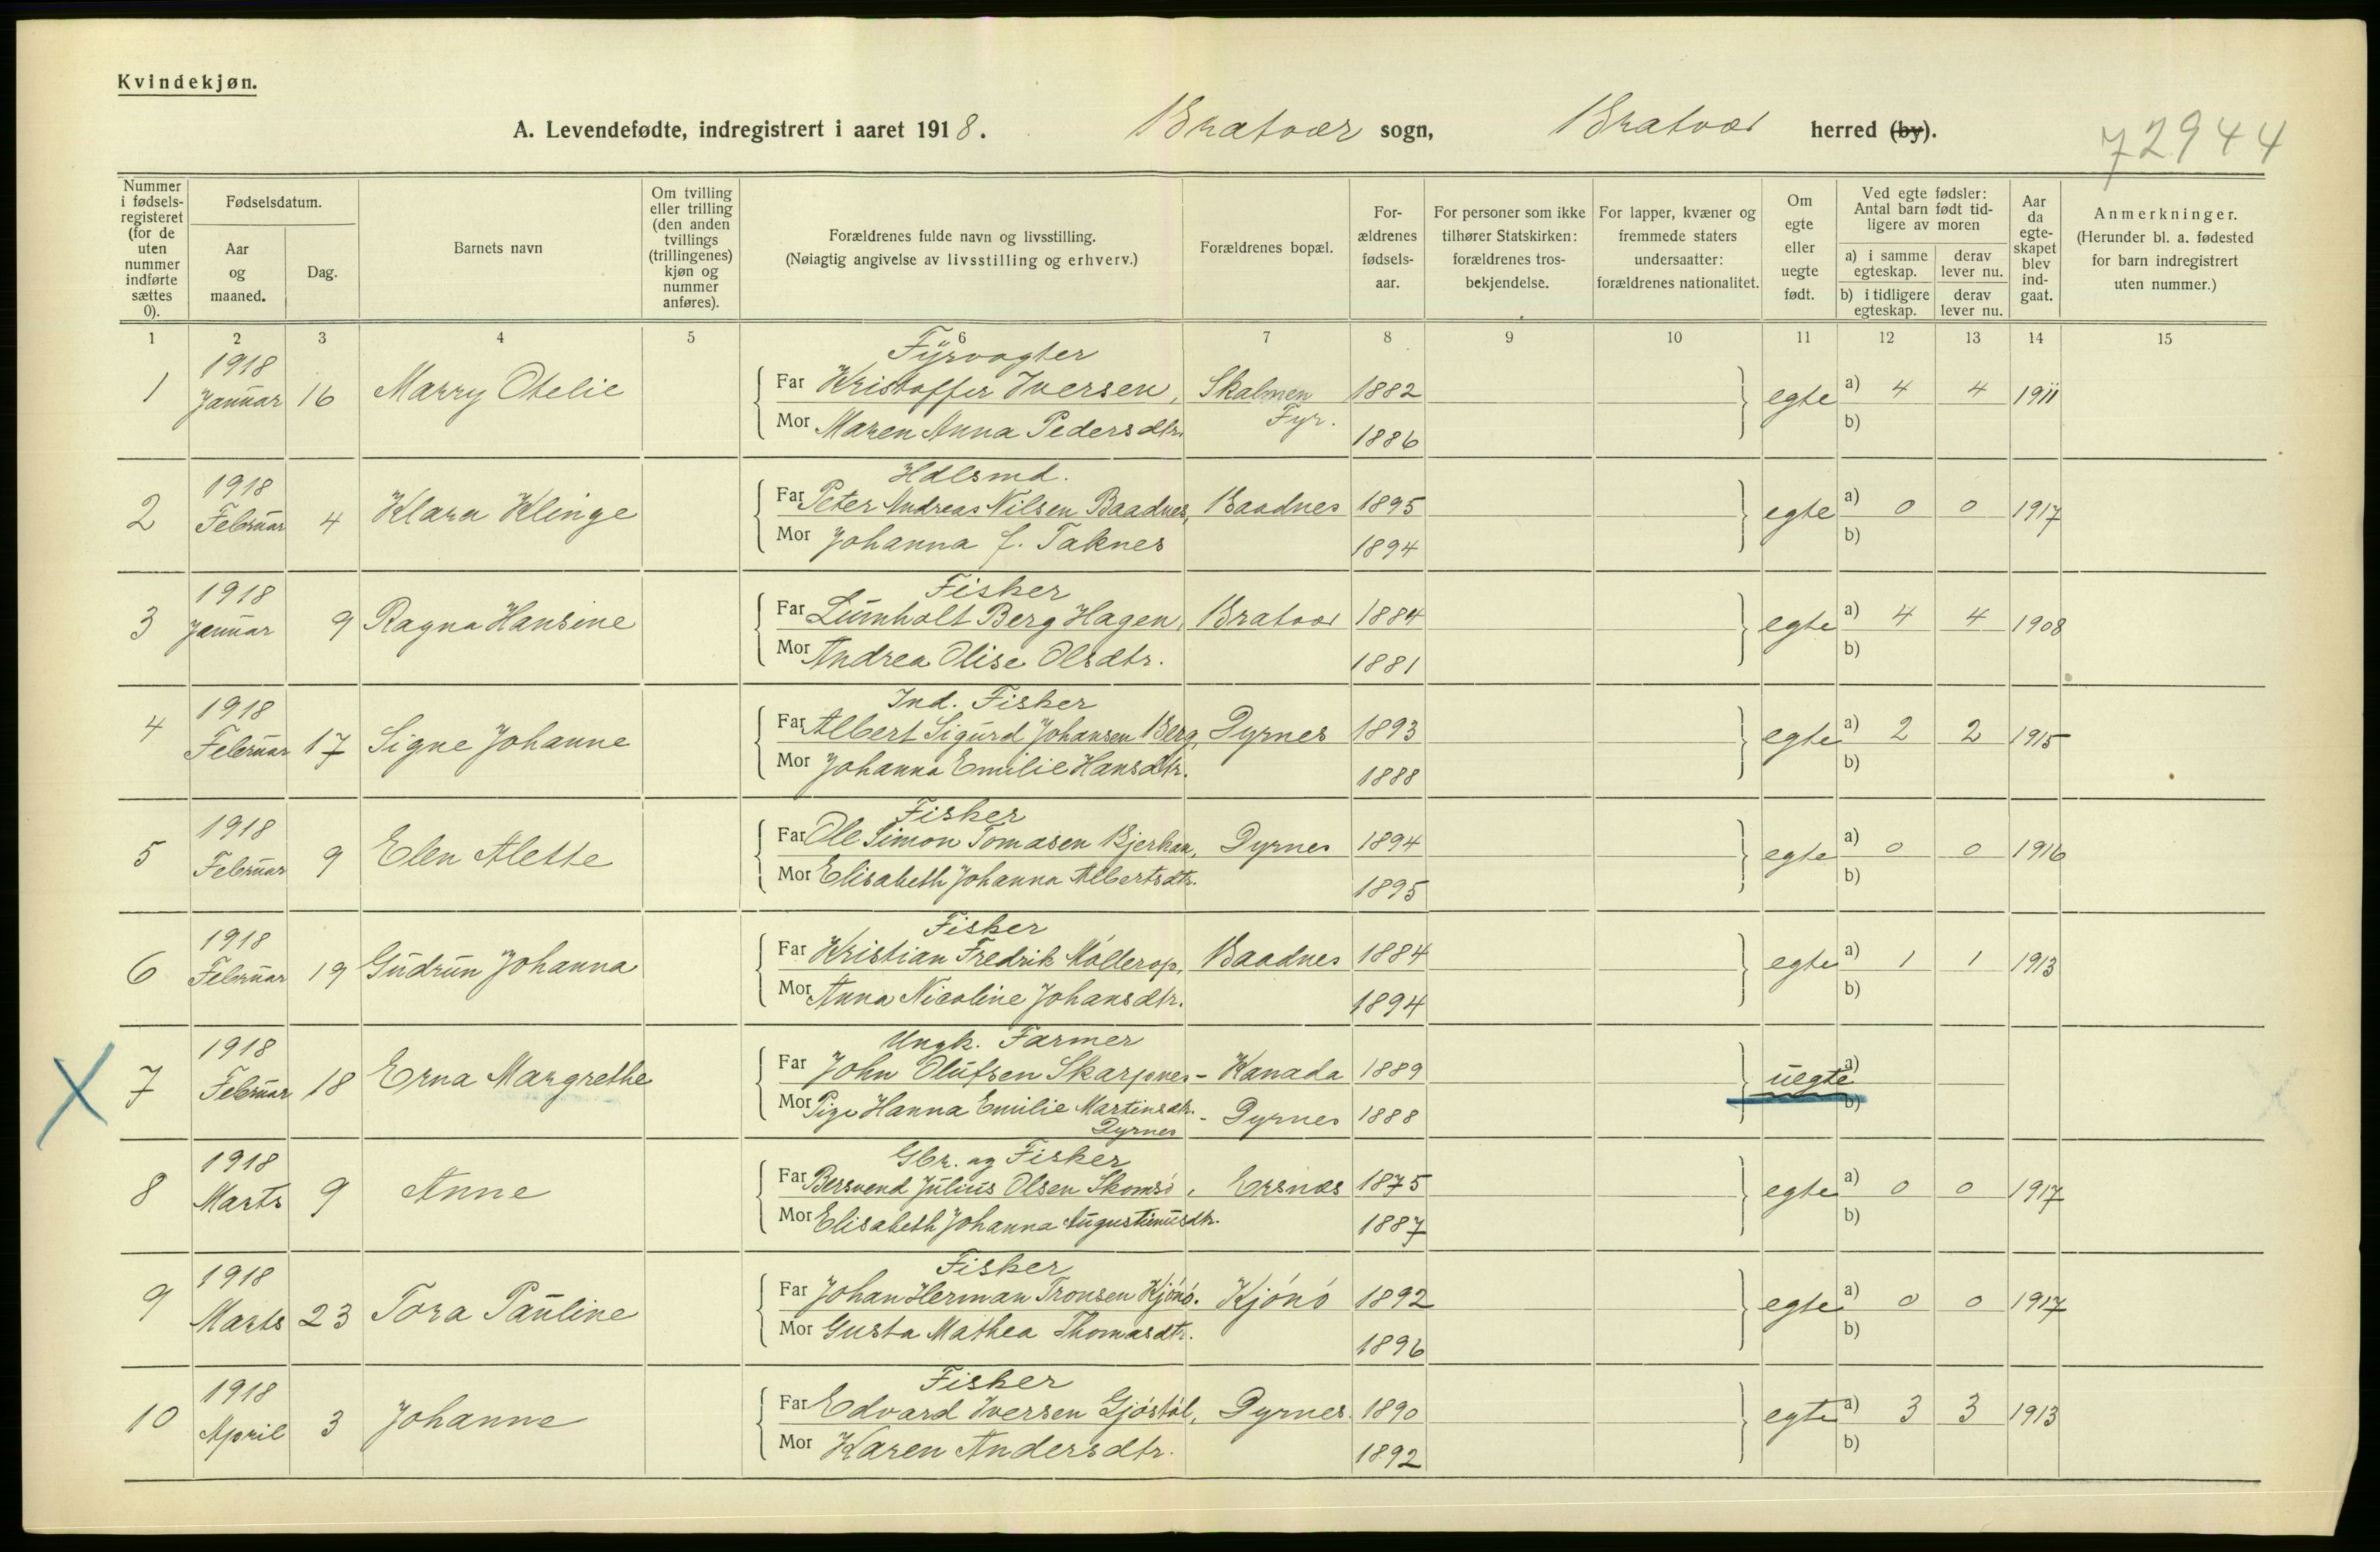 Kvindekjøn.
A. Levendefødte, indregistrert i aaret 1918. Bratvær sogn, Bratvær herred (by).
72944
Nummer i fødselsregisteret (for de uten nummer indførte sættes 0).
Fødselsdatum.
Aar og maaned.
Dag.
Barnets navn
Om tvilling eller trilling (den anden tvillings (trillingenes) kjøn og nummer anføres).
Forældrenes fulde navn og livsstilling.
(Nøiagtig angivelse av livsstilling og erhverv.)
Forældrenes bopæl.
Forældrenes fødselsaar.
For personer som ikke tilhører Statskirken: forældrenes trosbekjendelse.
For lapper, kvæner og fremmede staters undersaatter: forældrenes nationalitet.
Om egte eller uegte født.
Ved egte fødsler: Antal barn født tidligere av moren
a) i samme egteskap.
derav lever nu.
b) i tidligere egteskap.
derav lever nu.
Aar da egteskapet blev indgaat.
Anmerkninger.
(Herunder bl. a. fødested for barn indregistrert uten nummer.)
1 2 3 4 5 6 7 8 9 10 11 12 13 14 15
Fyrvogter
1 1918 Januar 16 Marry Otelie Far Kristoffer Iversen, Skalmen Fyr. 1882 egte a) 4 4 1911
Mor Maren Anna Pedersdtr. 1886 b)
Hdlsmd.
2 1918 Februar 4 Klara Klinge Far Peter Andreas Nilsen Baadnes, Baadnes 1895 egte a) 0 0 1917
Mor Johanna f. Taknes 1894 b)
Fisker
3 1918 Januar 9 Ragna Hansine Far Lumholt Berg Hagen, Bratvær 1884 egte a) 4 4 1908
Mor Andrea Olise Olsdtr. 1881 b)
Ind. Fisker
4 1918 Februar 17 Signe Johanne Far Albert Sigurd Johansen Berg, Dyrnes 1893 egte a) 2 2 1915
Mor Johanna Emilie Hansdtr. 1888 b)
Fisker
5 1918 Februar 9 Elen Alette Far Ole Simon Tomasen Bjerkan, Dyrnes 1894 egte a) 0 0 1916
Mor Elisabeth Johanna Albertsdtr. 1895 b)
Fisker
6 1918 Februar 19 Gudrun Johanna Far Kristian Fredrik Møllerop, Baadnes 1884 egte a) 1 1 1913
Mor Anna Nicoline Johansdtr. 1894 b)
Ungk. Farmer
X 7 1918 Februar 18 Erna Margrethe Far John Olufsen Skarpnes - Kanada 1889 uegte a)
Mor Pige Hanna Emilie Martinsdtr. Dyrnes - Dyrnes 1888 b)
Gbr. og Fisker
8 1918 Marts 9 Anne Far Bersvend Julius Olsen Skomsø, Ersnes 1875 egte a) 0 0 1917
Mor Elisabeth Johanna Augustinusdtr. 1887 b)
Fisker
9 1918 Marts 23 Tora Pauline Far Johan Herman Tronsen Kjønø. Kjønø 1892 egte a) 0 0 1917
Mor Gusta Mathea Thomasdtr. 1896 b)
Fisker
10 1918 April 3 Johanne Far Edvard Iversen Gjøstøl, Dyrnes. 1890 egte a) 3 3 1913
Mor Karen Andersdtr. 1892 b)